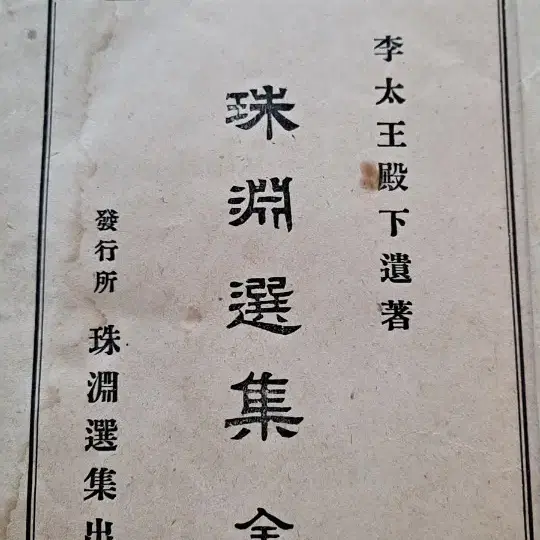 李太王殿下遺著
珠淵選集 全
發行所 珠淵選集出